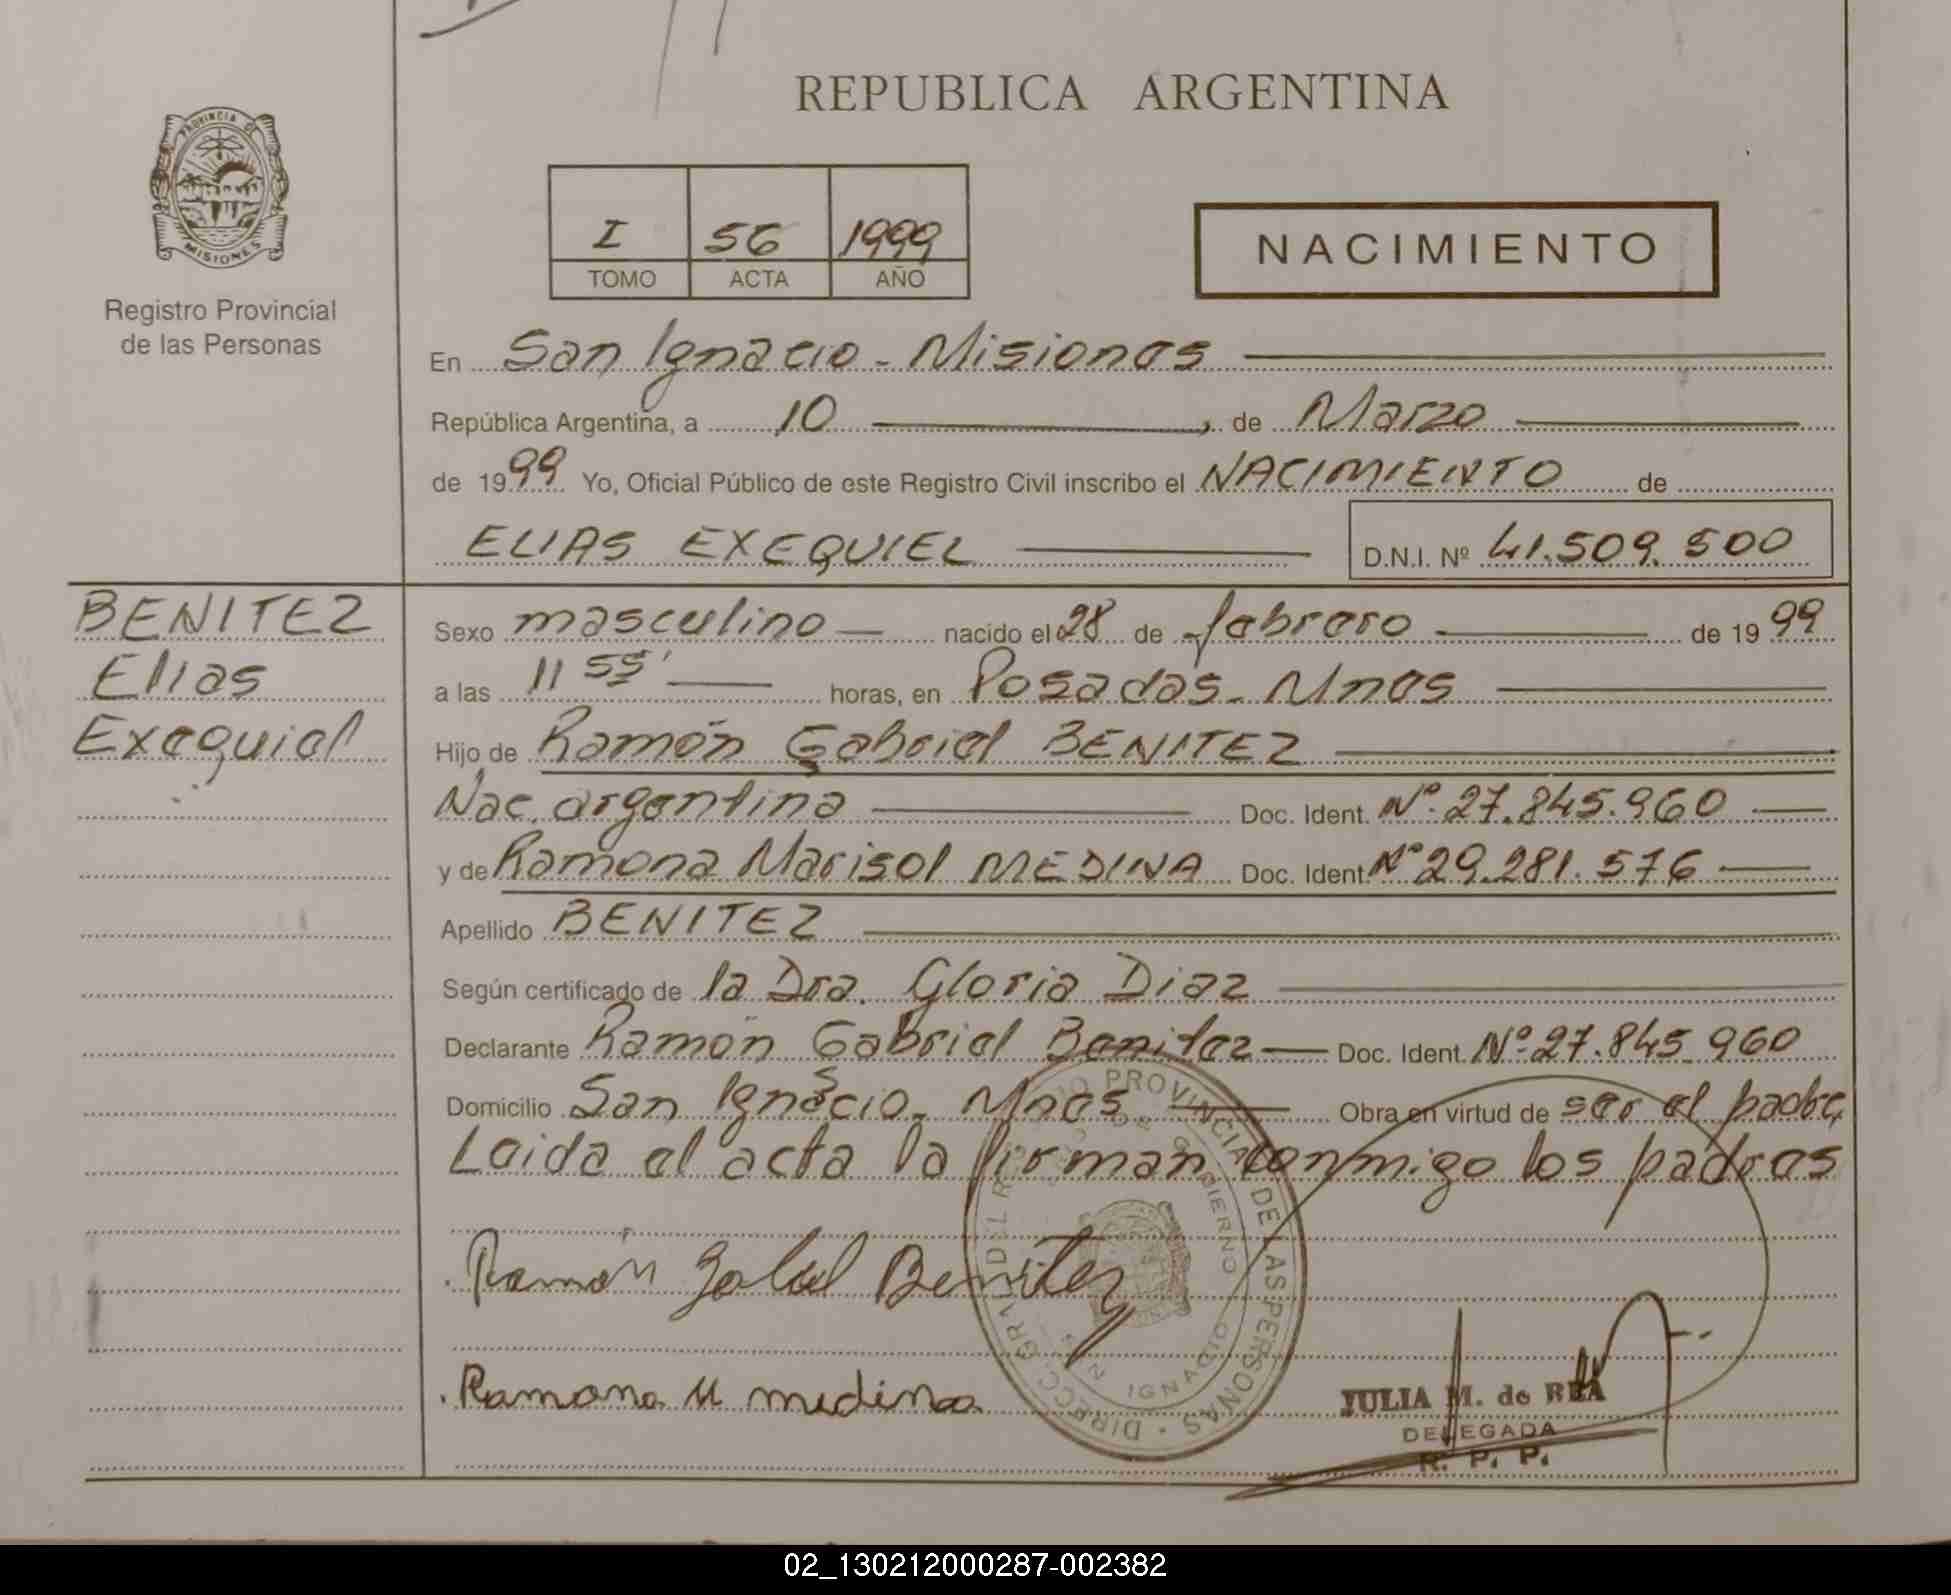 REPUBLICA ARGENTINA
PROVINCIA DE
MISIONES
Registro Provincial
de las Personas
I 56 1999
TOMO ACTA AÑO
NACIMIENTO
En San Ignacio - Misiones
República Argentina, a 10, de Marzo
de 1999 Yo, Oficial Público de este Registro Civil inscribo el NACIMIENTO de
ELIAS EXEQUIEL D.N.I. Nº 41.509.500
BENITEZ
Elias
Exequiel
Sexo masculino nacido el 28 de febrero de 1999
a las 11 55' horas, en Posadas - Mnes
Hijo de Ramón Gabriel BENITEZ
Nac. argentina Doc. Ident. Nº 27.845.960
y de Ramona Marisol MEDINA Doc. Ident. Nº 29.281.576
Apellido BENITEZ
Según certificado de la Dra. Gloria Diaz
Declarante Ramón Gabriel Benitez Doc. Ident. Nº 27.845.960
Domicilio San Ignacio - Mnes Obra en virtud de ser el padre,
Leida el acta la firman conmigo los padres
Ramón Gabriel Benitez
Ramona M medina
DIRECC. GRAL. DEL REGISTRO PROVINCIAL DE LAS PERSONAS
SAN IGNACIO
JULIA M. de REA
DELEGADA
R. P. P.
02_130212000287-002382